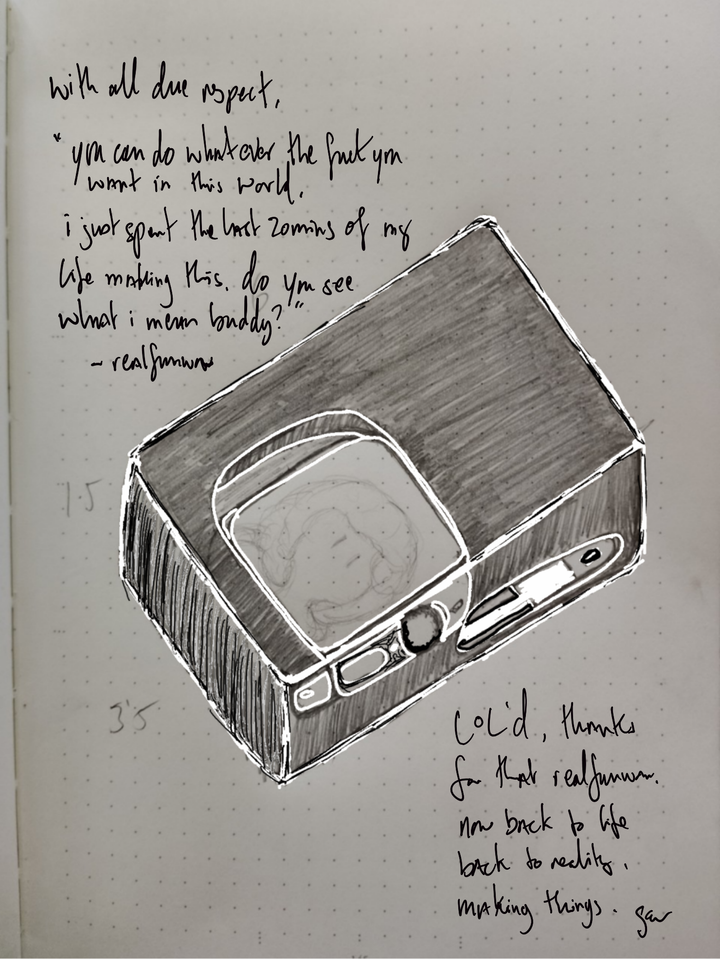 with all due respect,
"you can do whatever the fuck you
want in this world.
i just spent the last 20mins of my
life making this. do you see
what i mean buddy?"
- realfunwow
15
35
LOL'd, thanks
for that realfunwow.
now back to life
back to reality.
making things.